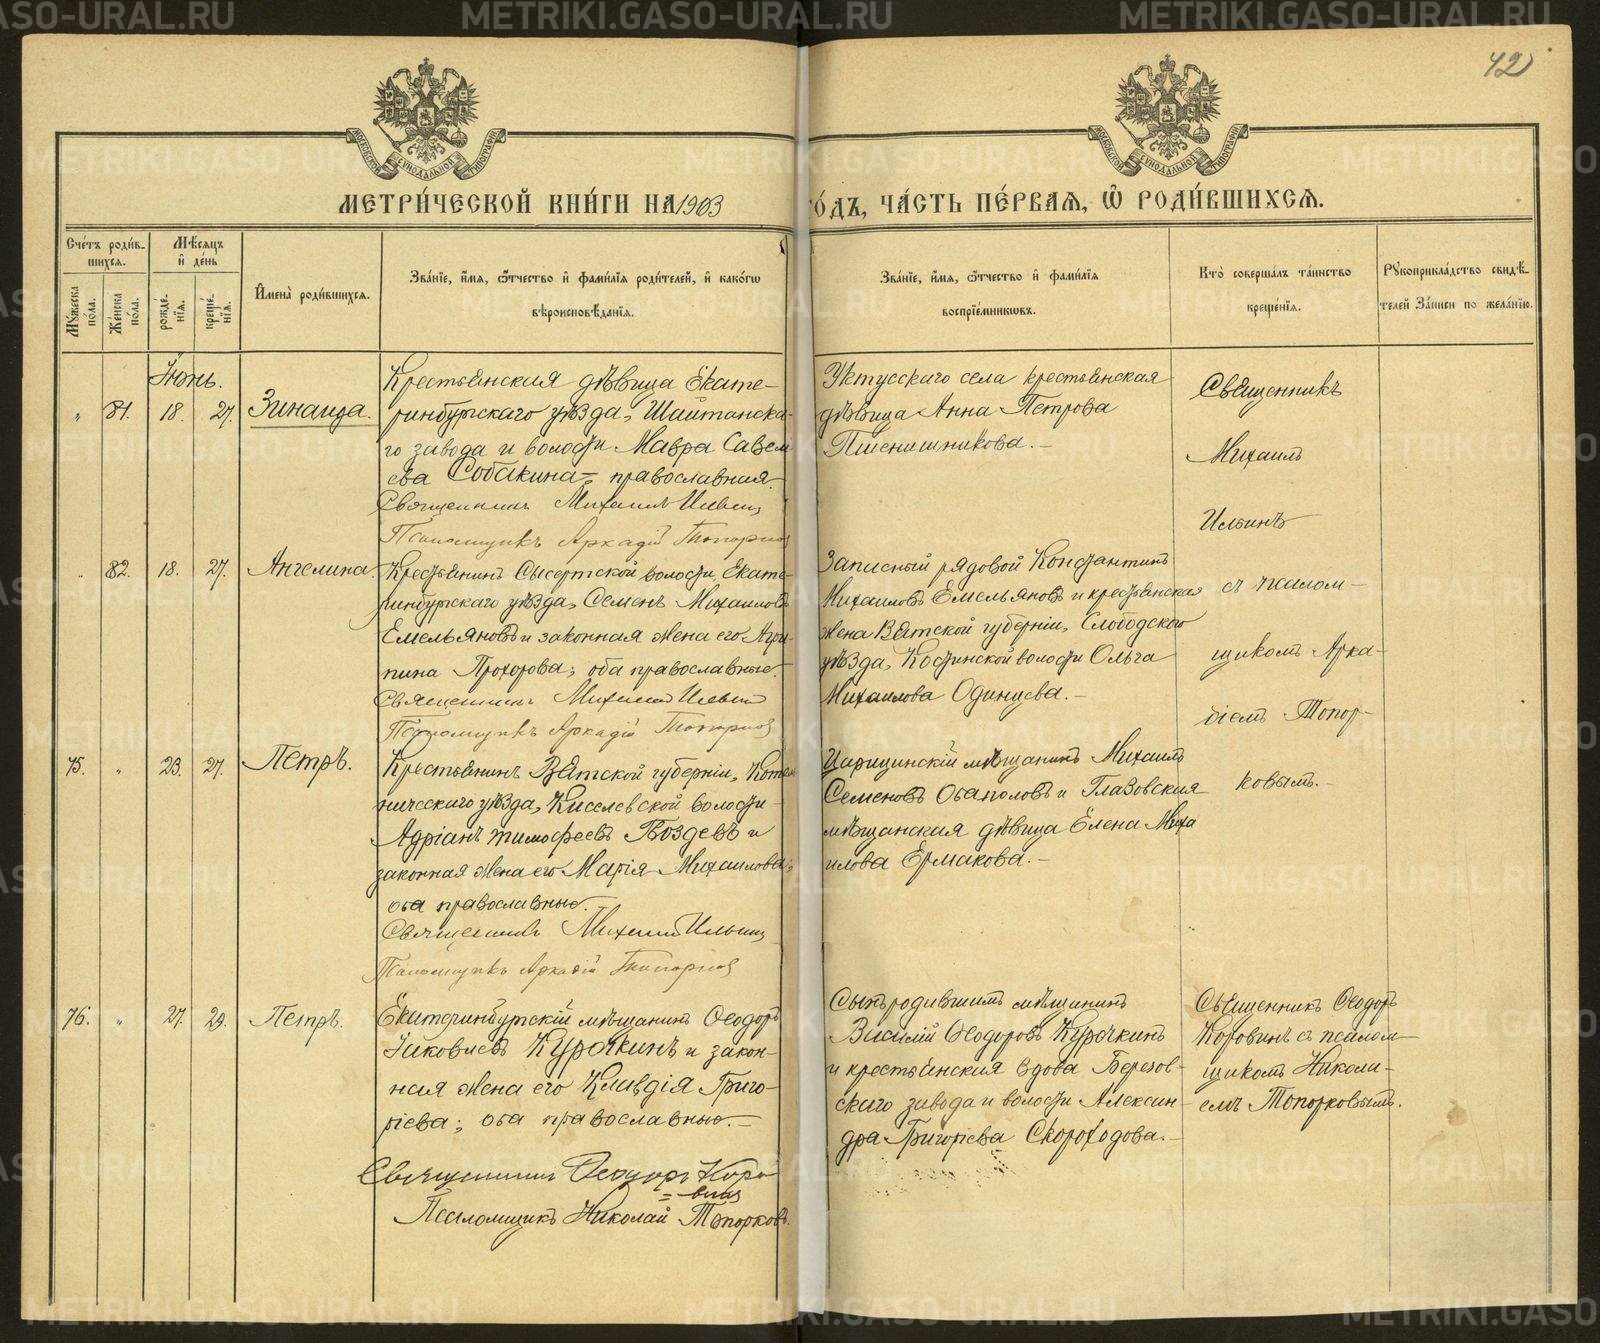 42
МЕТРИ́ЧЕСКОЙ КНИ́ГИ НА 1903
ГО́ДЪ, ЧА́СТЬ ПЕ́РВАЯ, Ѡ РОДИ́ВШИХСЯ.
Сче́тъ роди́вшихся.
Му́жеска по́ла.
Же́нска по́ла.
Мѣ́сяцъ и де́нь
рожде́нїя.
креще́нїя.
И҆мена̀ роди́вшихся.
Зва́нїе, и҆́мя, ѻ҆́тчество и҆ фами́лїя роди́телей, и҆ како́гѡ
вѣроисповѣ́данїя.
Зва́нїе, и҆́мя, ѻ҆́тчество и҆ фами́лїя
воспрїе́мникѡвъ.
Кто̀ соверша́лъ та́инство
креще́нїя.
Рꙋкоприкла́дство свидѣ́телей за́писи по жела́нїю.
Іюнь.
" 81. 18. 27. Зинаида.
Крестьянская дѣвица Екате-
ринбургскаго уѣзда, Шайтанска-
го завода и волости Мавра Савель
ева Собакина, православная.
Священникъ Михаилъ Ильинъ
Псаломщикъ Аркадій Топорковъ
Уктусскаго села крестьянская
дѣвица Анна Петрова
Пшенишникова.-
Священникъ
Михаилъ
Ильинъ
" 82. 18. 27. Ангелина.
Крестьянинъ Сысертской волости, Екате-
ринбургскаго уѣзда, Семенъ Михаиловъ
Емельяновъ и законная жена его Агри-
пина Прохорова; оба православные.
Священникъ Михаилъ Ильинъ
Псаломщикъ Аркадій Топорковъ
Записный рядовой Константинъ
Михаиловъ Емельяновъ и крестьянская
жена Вятской губерніи, Слободскаго
уѣзда, Костинской волости Ольга
Михаилова Одинцева.-
съ псалом-
щикомъ Арка-
діемъ Топор-
ковымъ.-
75. " 23. 27. Петръ.
Крестьянинъ Вятской губерніи, Котель
ническаго уѣзда, Киселевской волости
Адріанъ Тимофеевъ Гвоздевъ и
законная жена его Марія Михаилова;
оба православные.
Священникъ Михаилъ Ильинъ
Псаломщикъ Аркадій Топорковъ
Царицинскій мѣщанинъ Михаилъ
Семеновъ Обаполовъ и Глазовская
мѣщанская дѣвица Елена Миха
илова Ермакова.-
76. " 27. 29. Петръ.
Екатеринбургскій мѣщанинъ Ѳеодоръ
Іаковлевъ Курочкинъ и закон-
ная жена его Клавдія Григо-
ріева; оба православные.-
Священникъ Ѳеодоръ Коро
=винъ
Псаломщикъ Николай Топорковъ.
Сынъ родившихъ мѣщанинъ
Василій Ѳеодоровъ Курочкинъ
и крестьянская вдова Березов-
скаго завода и волости Алексан-
дра Григоріева Скороходова.-
Священникъ Ѳеодоръ
Коровинъ съ псалом-
щикомъ Никола-
емъ Топорковымъ.